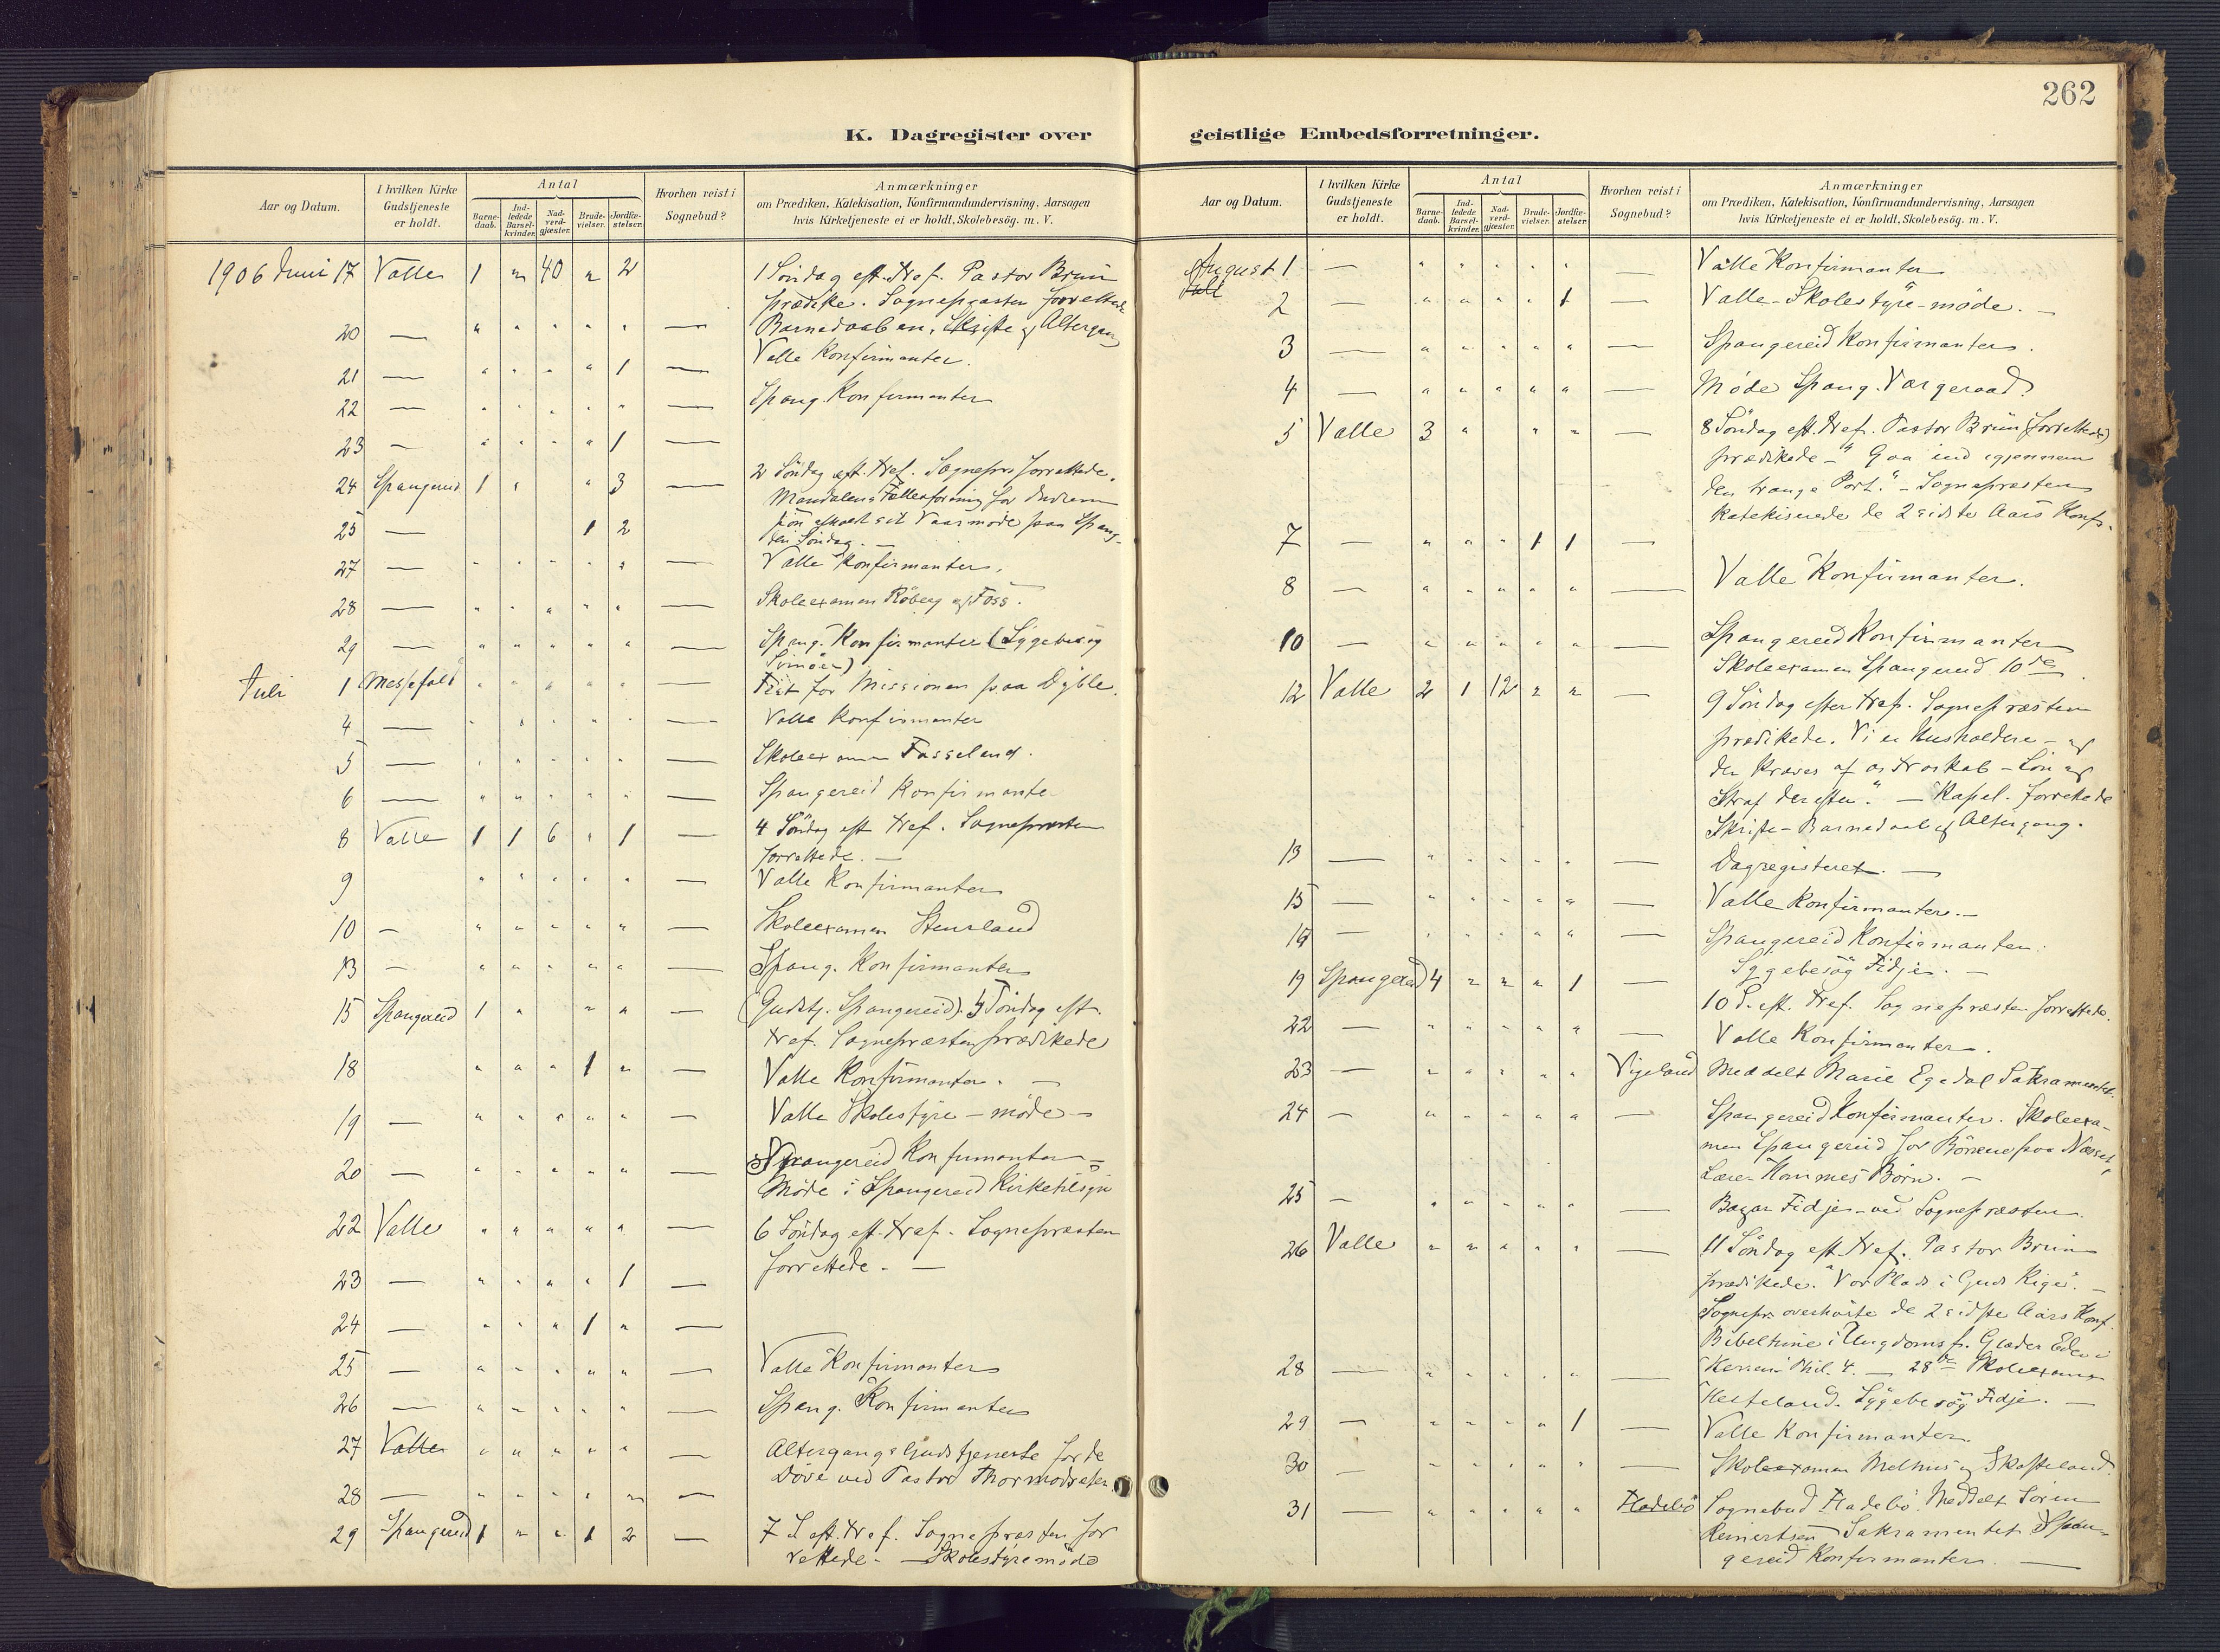 262
K. Dagregister over
geistlige Embedsforretninger.
Aar og Datum.
I hvilken Kirke Gudstjeneste er holdt.
Antal
Barnedaab.
Indledede Barselkvinder.
Nadverdgjæster.
Brudevielser.
Jordfæstelser.
Hvorhen reist i Sognebud?
Anmærkninger
om Prædiken, Katekisation, Konfirmandundervisning, Aarsagen
hvis Kirketjeneste ei er holdt, Skolebesög. m. V.
1906 Juni 17 Valle 1 " 40 " 2 1 Söndag eft. Tref. Pastor Brun
prædike. Sognepræsten forrettede
Barnedaaben, Skrifte og Altergang
20 — " " " " " — Valle Konfirmanter.
21 — " " " " 1 —
22 — " " " " " — Spang. Konfirmanter
23 — " " " " 1 —
24 Spangereid 1 " " 3 — 2 Söndag eft. Tref. Sognepr. forrettede.
Mandalens Fællesforening for
sit Vaarmöde paa Spang.
den Söndag. —
25 — 1 2
27 — " " " " " — Valle Konfirmanter.
28 — " " " " " — Skoleexamen Röberg og Foss.
29 — " " " " " — Spang. Konfirmanter (Sygebesög
Svinöer)
Juli 1 Messefald " " " " " — Fest for Missionen paa Dyble.
4 — " " " " " — Valle Konfirmanter
5 — " " " " " — Skoleexamen Fasseland.
6 — " " " " " — Spangereid Konfirmanter
8 Valle 1 1 6 " 1 — 4 Söndag eft Tref. Sognepræsten
forrettede. —
9 " " " " " — Valle Konfirmanter
10 — " " " " " — Skoleexamen Stensland
13 — " " " " " — Spang. Konfirmanter
15 Spangereid 1 " " " — (Gudstj. Spangereid). 5 Söndag eft.
Tref. Sognepræsten prædikede
18 " " " 1 " — Valle Konfirmanter. —
19 — " " " " " — Valle Skolestyre - möde —
20 — " " " " " Spangereid Konfirmanter —
Möde i Spangereid Kirketilsyn
22 Valle " " " " " — 6 Söndag eft. Tref. Sognepræsten
forrettede. —
23 — " " " " 1 —
24 — " " " 1 " —
25 — " " " " " — Valle Konfirmanter
26 — " " " " " — Spang. Konfirmanter
27 Valle " " " " " — Altergangs Gudstjeneste for de
Döve ved Pastor Thormodsæter.
28 — " " " " " —
29 Spangereid 1 " " 1 2 — 7 S. eft. Tref. Sognepræsten for
rettede. — Skolestyremöde
Aar og Datum.
I hvilken Kirke Gudstjeneste er holdt.
Antal
Barnedaab.
Indledede Barselkvinder.
Nadverdgjæster.
Brudevielser.
Jordfæstelser.
Hvorhen reist i Sognebud?
Anmærkninger
om Prædiken, Katekisation, Konfirmandundervisning, Aarsagen
hvis Kirketjeneste ei er holdt, Skolebesög. m. V.
August 1 — " " " " " Valle Konfirmanter
Juli
2 — " " " " 1 — Valle - Skolestyre - möde. —
3 — " " " " " — Spangereid Konfirmanter.
4 — " " " " " — Möde Spang. Værgeraad.
5 Valle 3 " " " — 8 Söndag eft. Tref. Pastor Brun (forrettede)
prædikede - "Gaa ind igjennem
den trange Port." - Sognepræsten
katekiserede de 2 sidste Aars Konf.
7 — " " " 1 1 —
8 — " " " " " — Valle Konfirmanter.
10 — " " " " " — Spangereid Konfirmanter
Skoleexamen Spangereid 10de
12 Valle 2 1 12 " " — 9 Söndag efter Tref. Sognepræsten
prædikede. Vi er Husholdere - og
der kræves af os troskab - Lön og
Straf derefter." — Kapel. forrettede
Skrifte - Barnedaab og Altergang.
13 — " " " " " — Dagregisteret. —
15 — " " " " " — Valle Konfirmanter. —
16 — " " " " " — Spangereid Konfirmanter.
Sygebesög Fidje. —
19 Spangereid 4 " " " 1 — 10 S. eft. Tref. Sognepræsten forrettede.
22 — " " " " " — Valle Konfirmanter.
23 — " " " " " Vigeland Meddelt Marie Egedal Sakramentet.
24 — " " " " " — Spangereid Konfirmanter. Skoleexa-
men Spangereid for Börnene paa Næsset,
Lærer Hommes Börn. —
25 — " " " " " — Bazar Fidje - ved Sognepræsten.
26 Valle " " " " " — 11 Söndag eft. Tref. Pastor Brun
prædikede. "Vor Plads i Guds Rige". —
Sognepr. overhörte de 2 sidste Aars Konf.
Bibeltime i Ungdomsf. Glæder Eder i
Herren Phil. 4. — 28de Skoleexamen
28 — " " " " " — Hesteland. Sygebesög Fidje. —
29 — " " " " 1 — Valle Konfirmanter.
30 — " " " " " — Skoleexamen Melhus og Skofteland.
31 — " " " " " Fladebö Sognebud Fladebö. Meddelt Sören
Reinertsen Sakramentet. Span-
gereid Konfirmanter. —